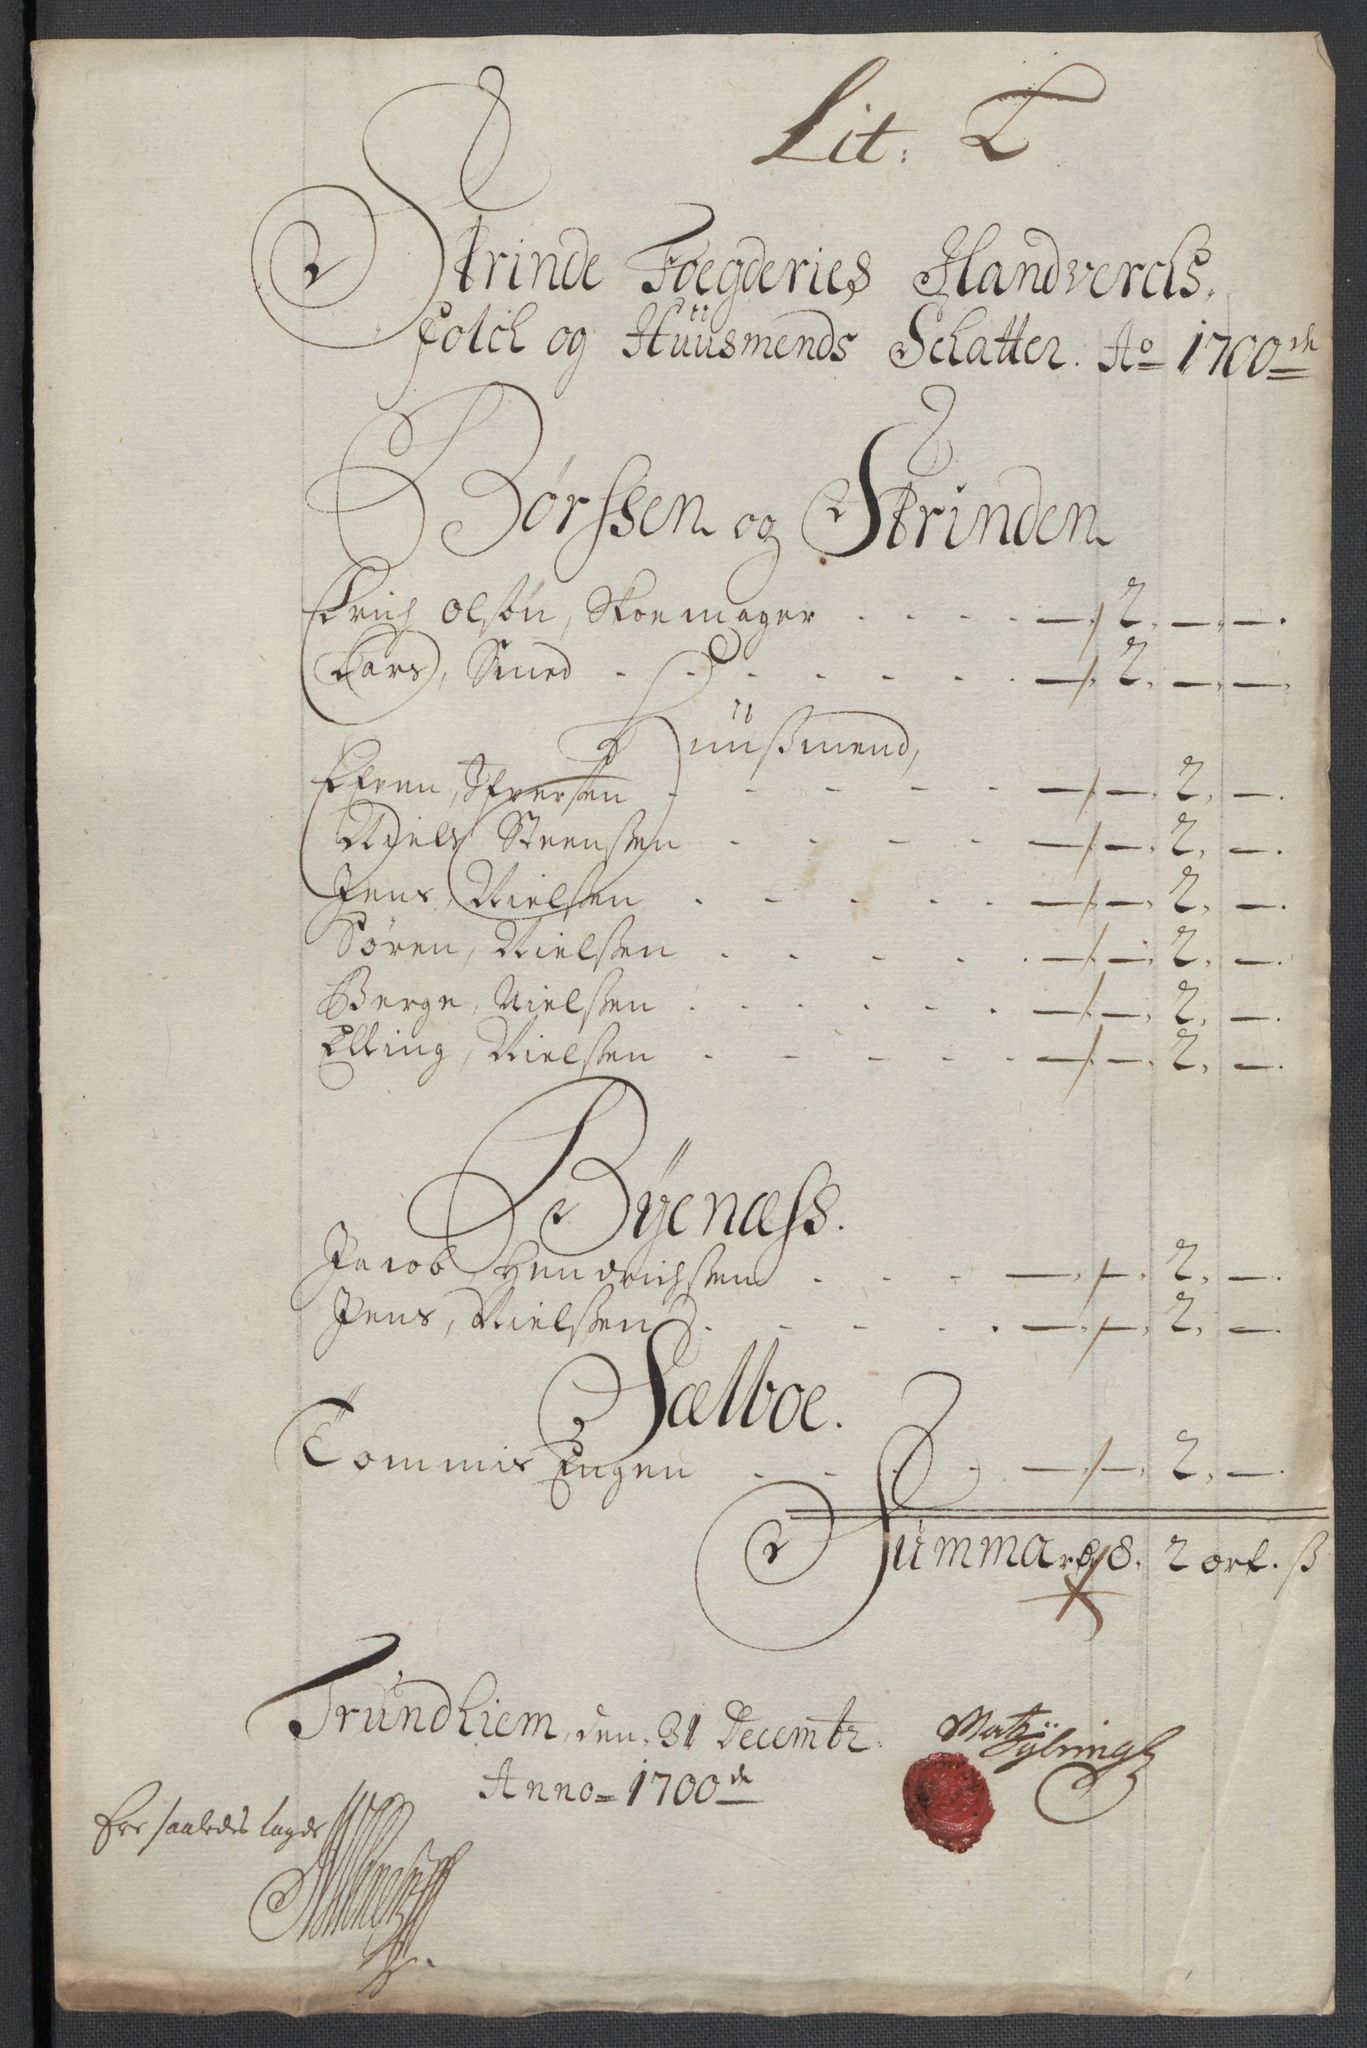 Lit. T
Strinde Foegderies Handverchs
folch og Huusmends Schatter. Ao 1700de
Børssen og Strinden
Erich Olsøn, Skoemager . . . . — 2. — —.
Lars, Smed . . . . . . — 2. — —.
Huusmend,
Efven, Ifversen . . . . . — — 2. —.
Niels Steensen . . . . — — 2. —.
Jens, Nielsen . . . . . — — 2. —.
Søren, Nielsen . . . . . — — 2. —.
Berge, Nielsen . . . . . — — 2. —.
Elling, Nielsen . . . . . — — 2. —.
Byenæss.
Jacob Hendrichsen . . . — — 2. —.
Jens, Nielsen . . . . . — — 2. —.
Sælboe.
Tommis Engen . . . . — — 2. —.
Summa rd 8. 2 ort. ß
Trundhiem, den 31 Decembr.
Anno 1700de
Er saaledis lagde